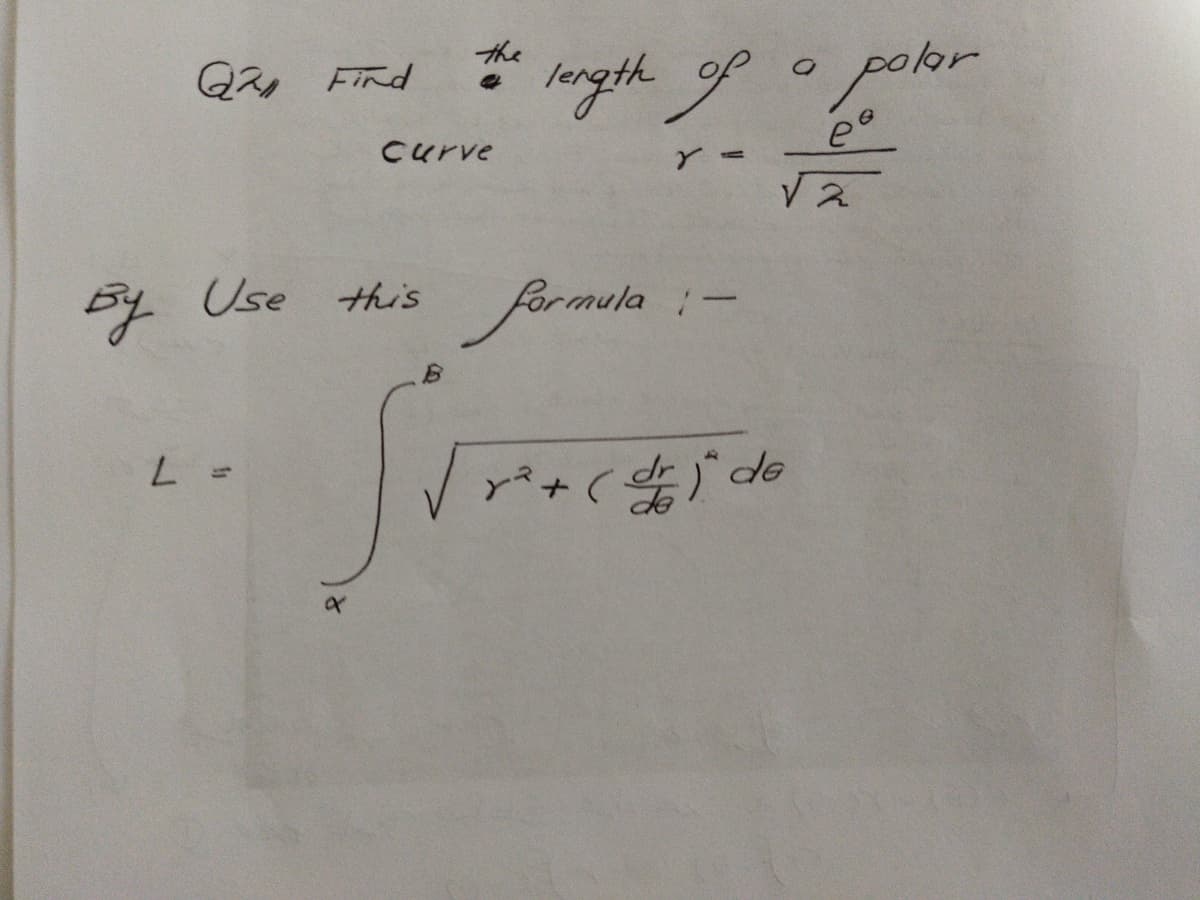 Q2,, Find the length of a polar
curve r = e^θ / √2
By Use this formula :-
L = ∫_α^B √(r² + (dr/dθ)²) dθ